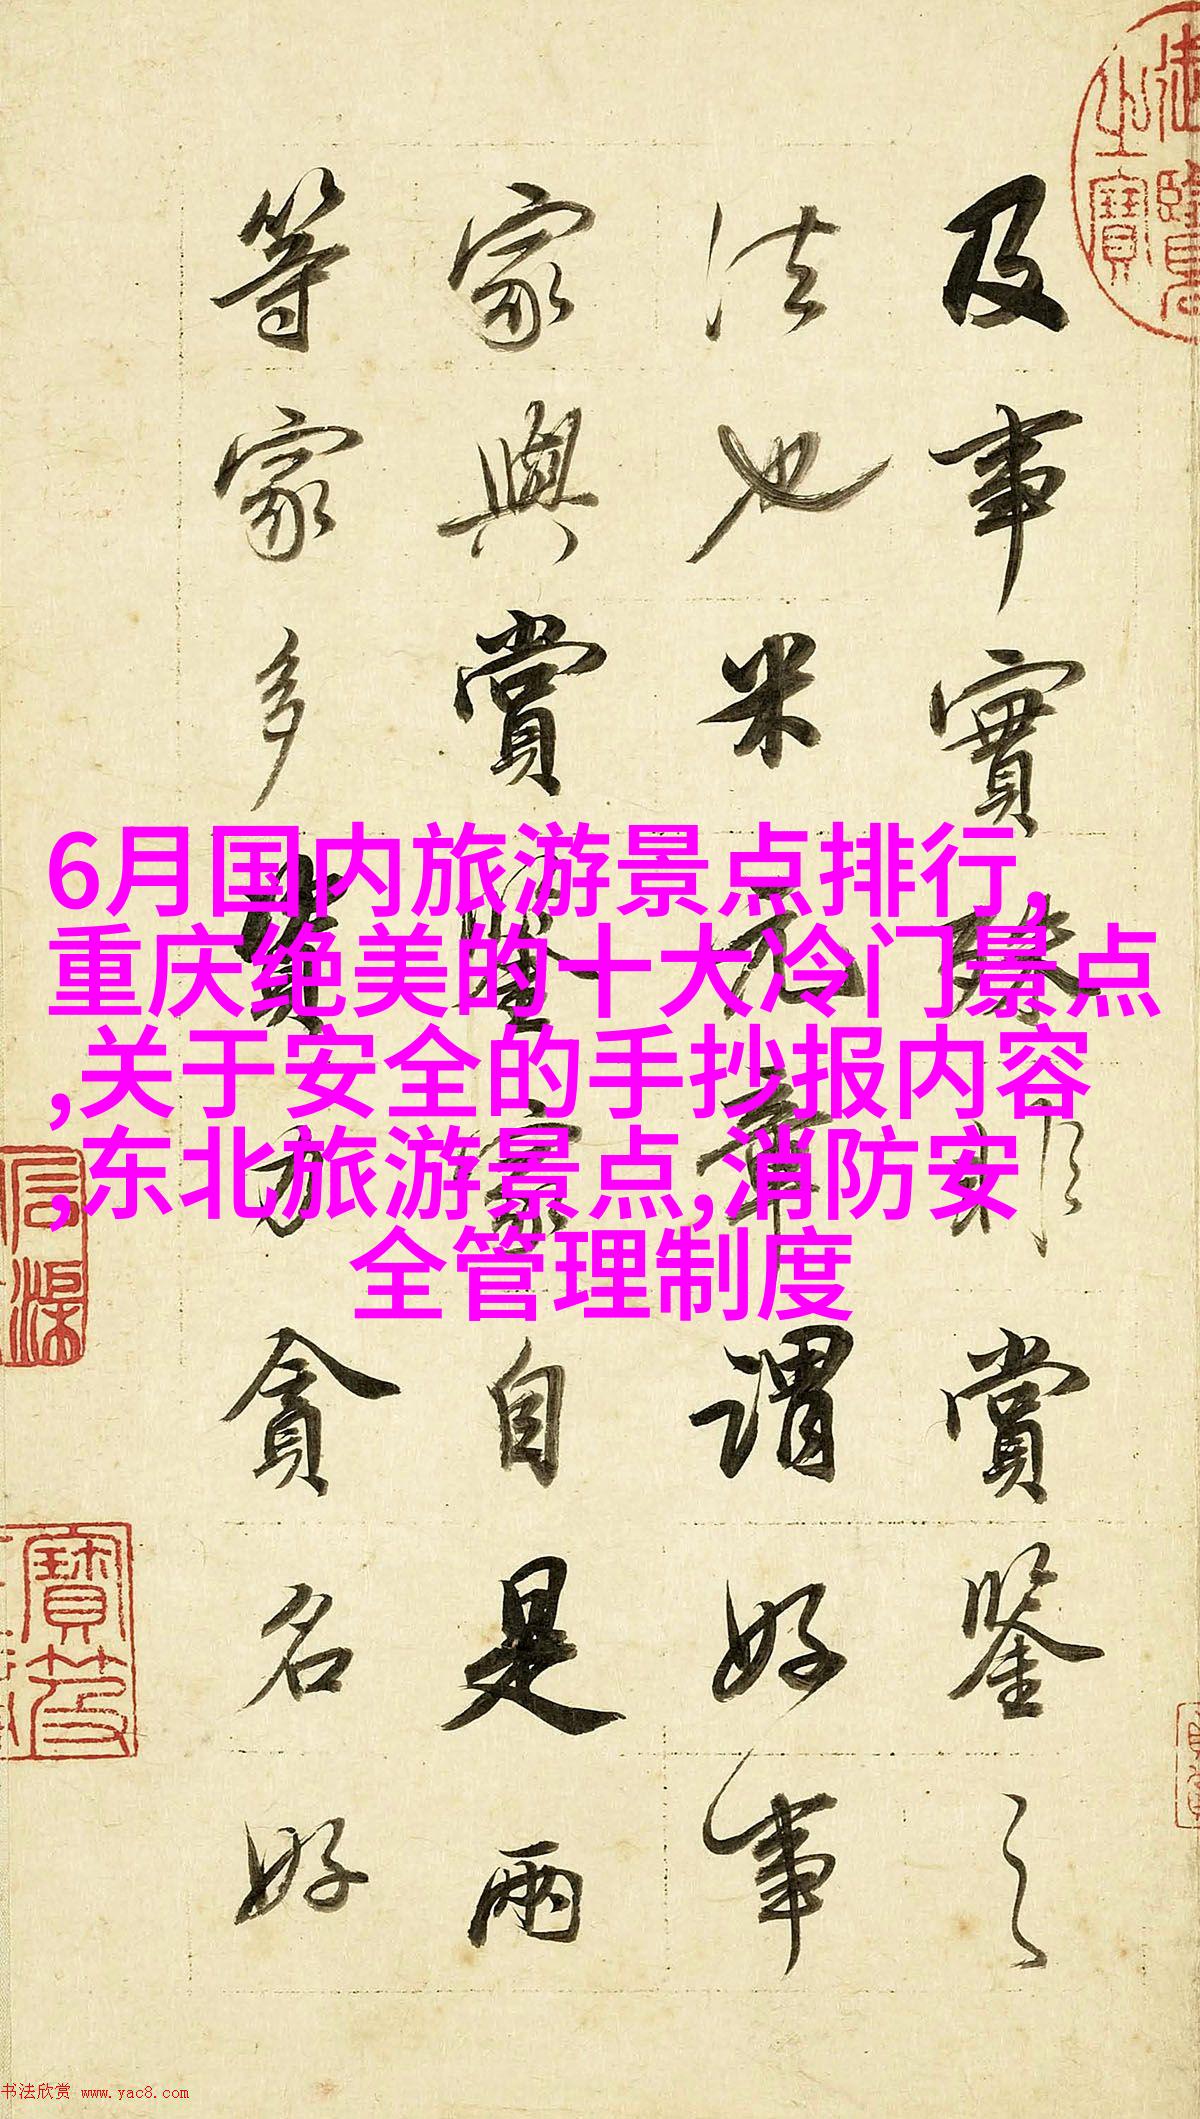 及事實醫則賞鑒之
法也米元章謂好事
家與賞鑒家自是兩
等家多資力貪名好
6月国内旅游景点排行,
重庆绝美的十大冷门景点
,关于安全的手抄报内容
,东北旅游景点,消防安
全管理制度
书法欣赏 www.yac8.com